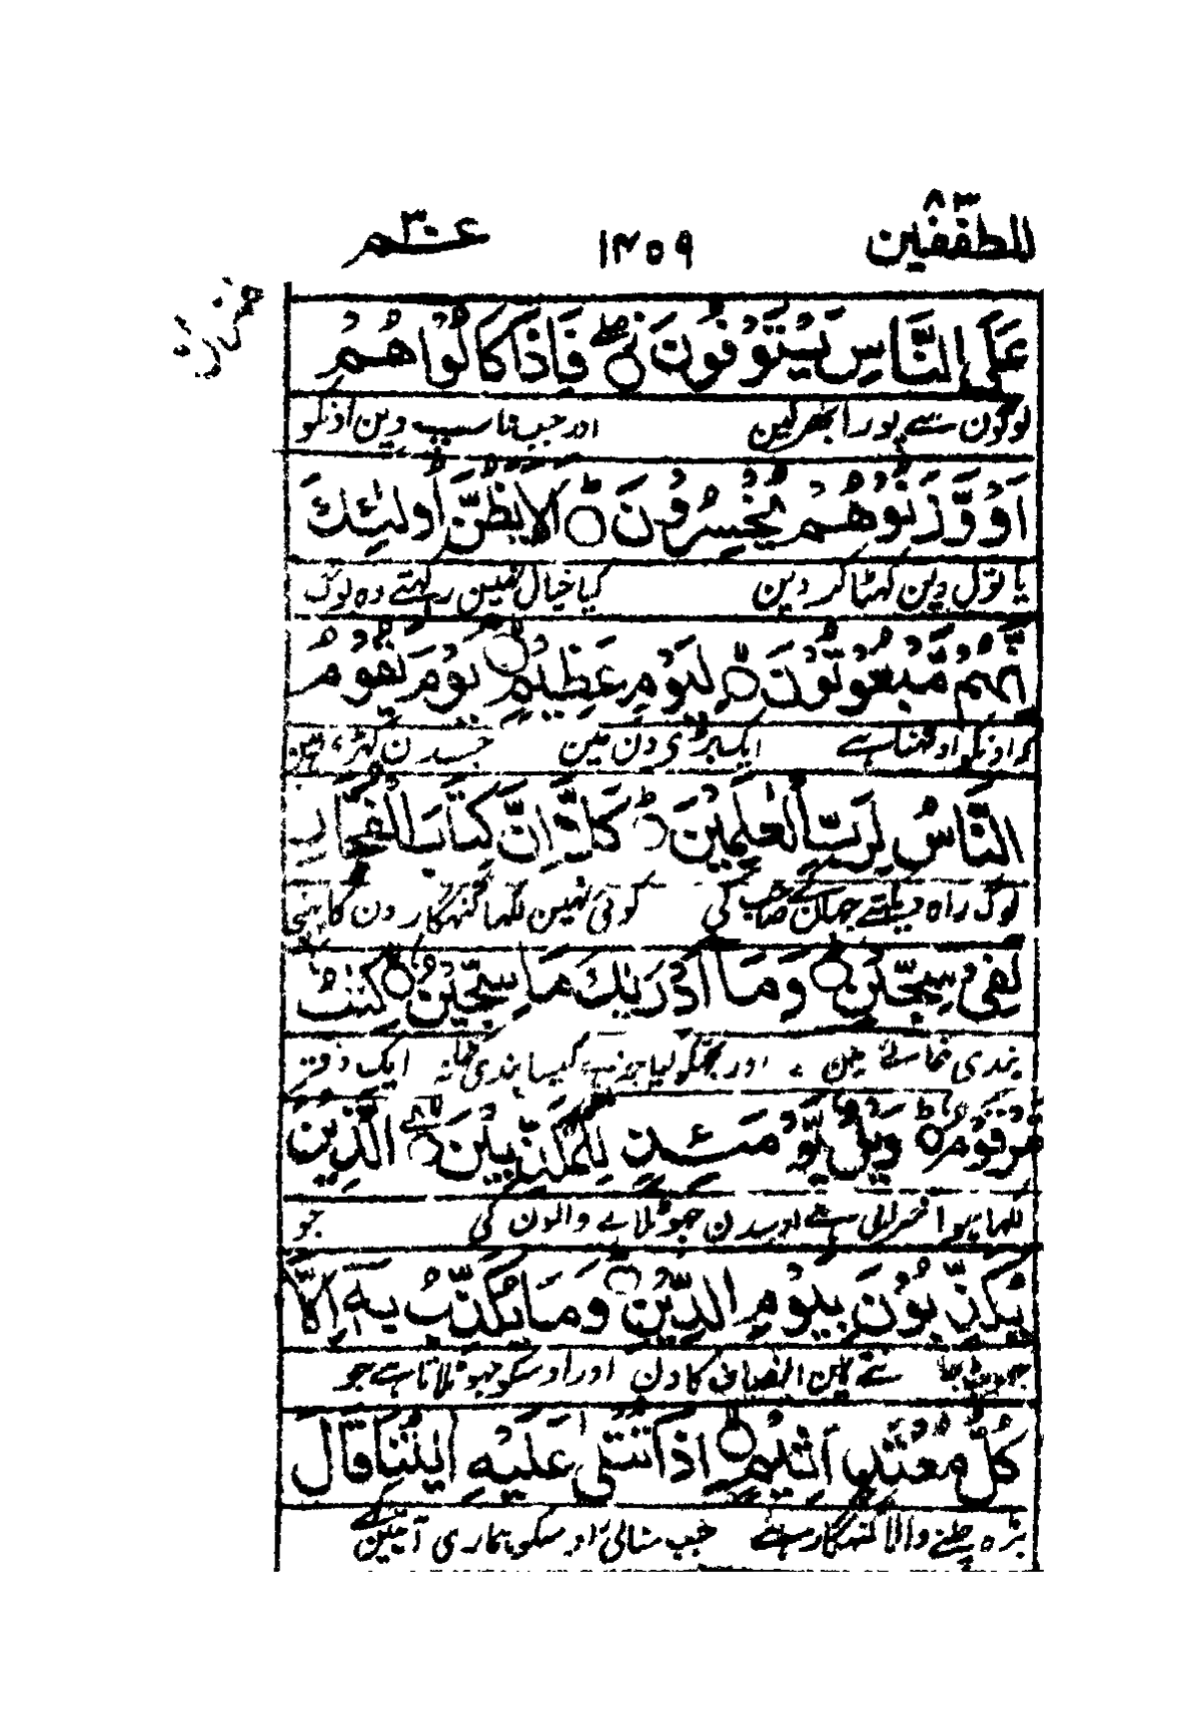 المطففین ٨٣ ١٢٥٩ عـم ٣٠
عَلَى النَّاسِ يَسْتَوْفُوْنَ وَاِذَا كَالُوْا هُمْ
لوگون سے پورا بھرلین اور جب ناپ دین اونکو
اَوْ وَّزَنُوْهُمْ يُخْسِرُوْنَ ؕ اَلَا يَظُنُّ اُولٰٓئِكَ
یا تول دین گھٹا کر دین کیا خیال نہین رکھتے وہ لوگ
اَنَّهُمْ مَّبْعُوْثُوْنَ ۙ لِيَوْمٍ عَظِيْمٍ ۙ يَوْمَ يَقُوْمُ
کہ اونکو اوٹھنا ہے ایک بڑی دن مین جسدن کھڑے ہین
النَّاسُ لِرَبِّ الْعٰلَمِيْنَ ؕ كَلَّآ اِنَّ كِتٰبَ الْفُجَّارِ
لوگ راہ دیکھتے جہان کے صاحب کی کوئی نہین لکھا گنہگارون کا پہنچی
لَفِيْ سِجِّيْنٍ ؕ وَمَآ اَدْرٰىكَ مَا سِجِّيْنٌ ؕ كِتٰبٌ
بندی خانے مین اور تجکو کیا خبر ہے کیسا بندی خانہ ایک دفتر
مَّرْقُوْمٌ ؕ وَيْلٌ يَّوْمَئِذٍ لِّلْمُكَذِّبِيْنَ ۙ الَّذِيْنَ
لکھا ہوا خرابی ہے اوسدن جھوٹلانے والون کی جو
يُكَذِّبُوْنَ بِيَوْمِ الدِّيْنِ ؕ وَمَا يُكَذِّبُ بِهٖٓ اِلَّا
جھوٹھ جانتے ہین انصاف کا دن اور اوسکو جھوٹلاتا ہے جو
كُلُّ مُعْتَدٍ اَثِيْمٍ ۙ اِذَا تُتْلٰى عَلَيْهِ اٰيٰتُنَا قَالَ
بڑہ چلنے والا گنہگار ہے جب سنائی اوسکو ہماری آیتین کہے